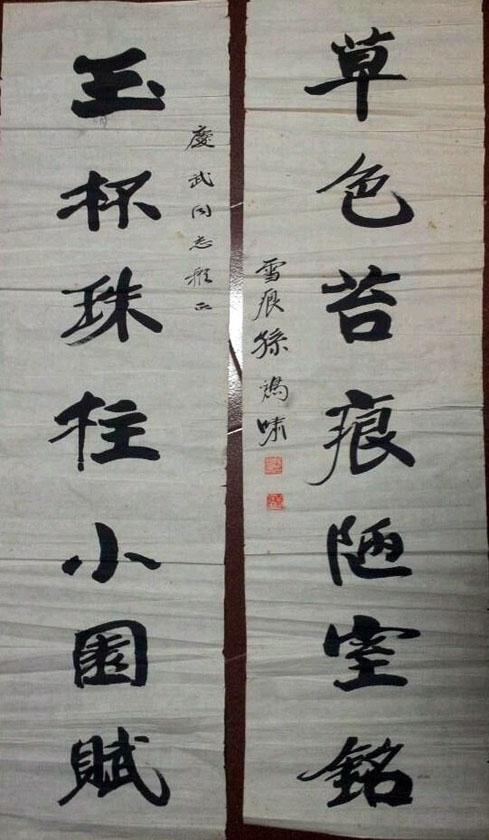 草色苔痕陋室銘
雪痕孫
慶武同志雅正
玉杯珠柱小園賦